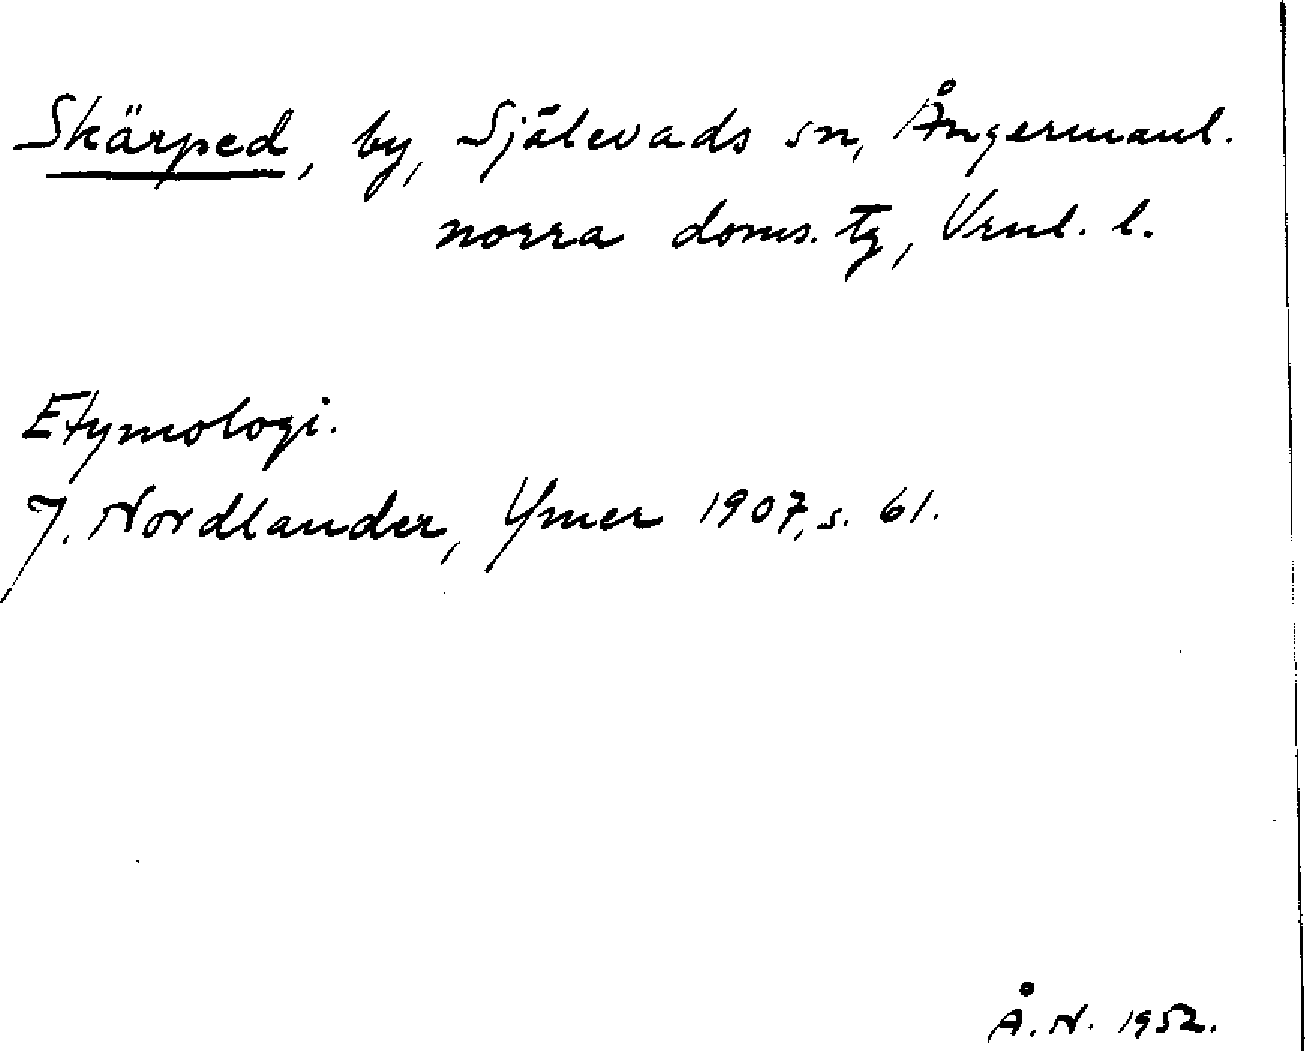 Skärped, by, Själevads sn, Ångermanl.
norra doms. tg, Vrnl. l.
Etymologi.
J. Nordlander, Ymer 1907, s. 61.
Å. N. 1952.